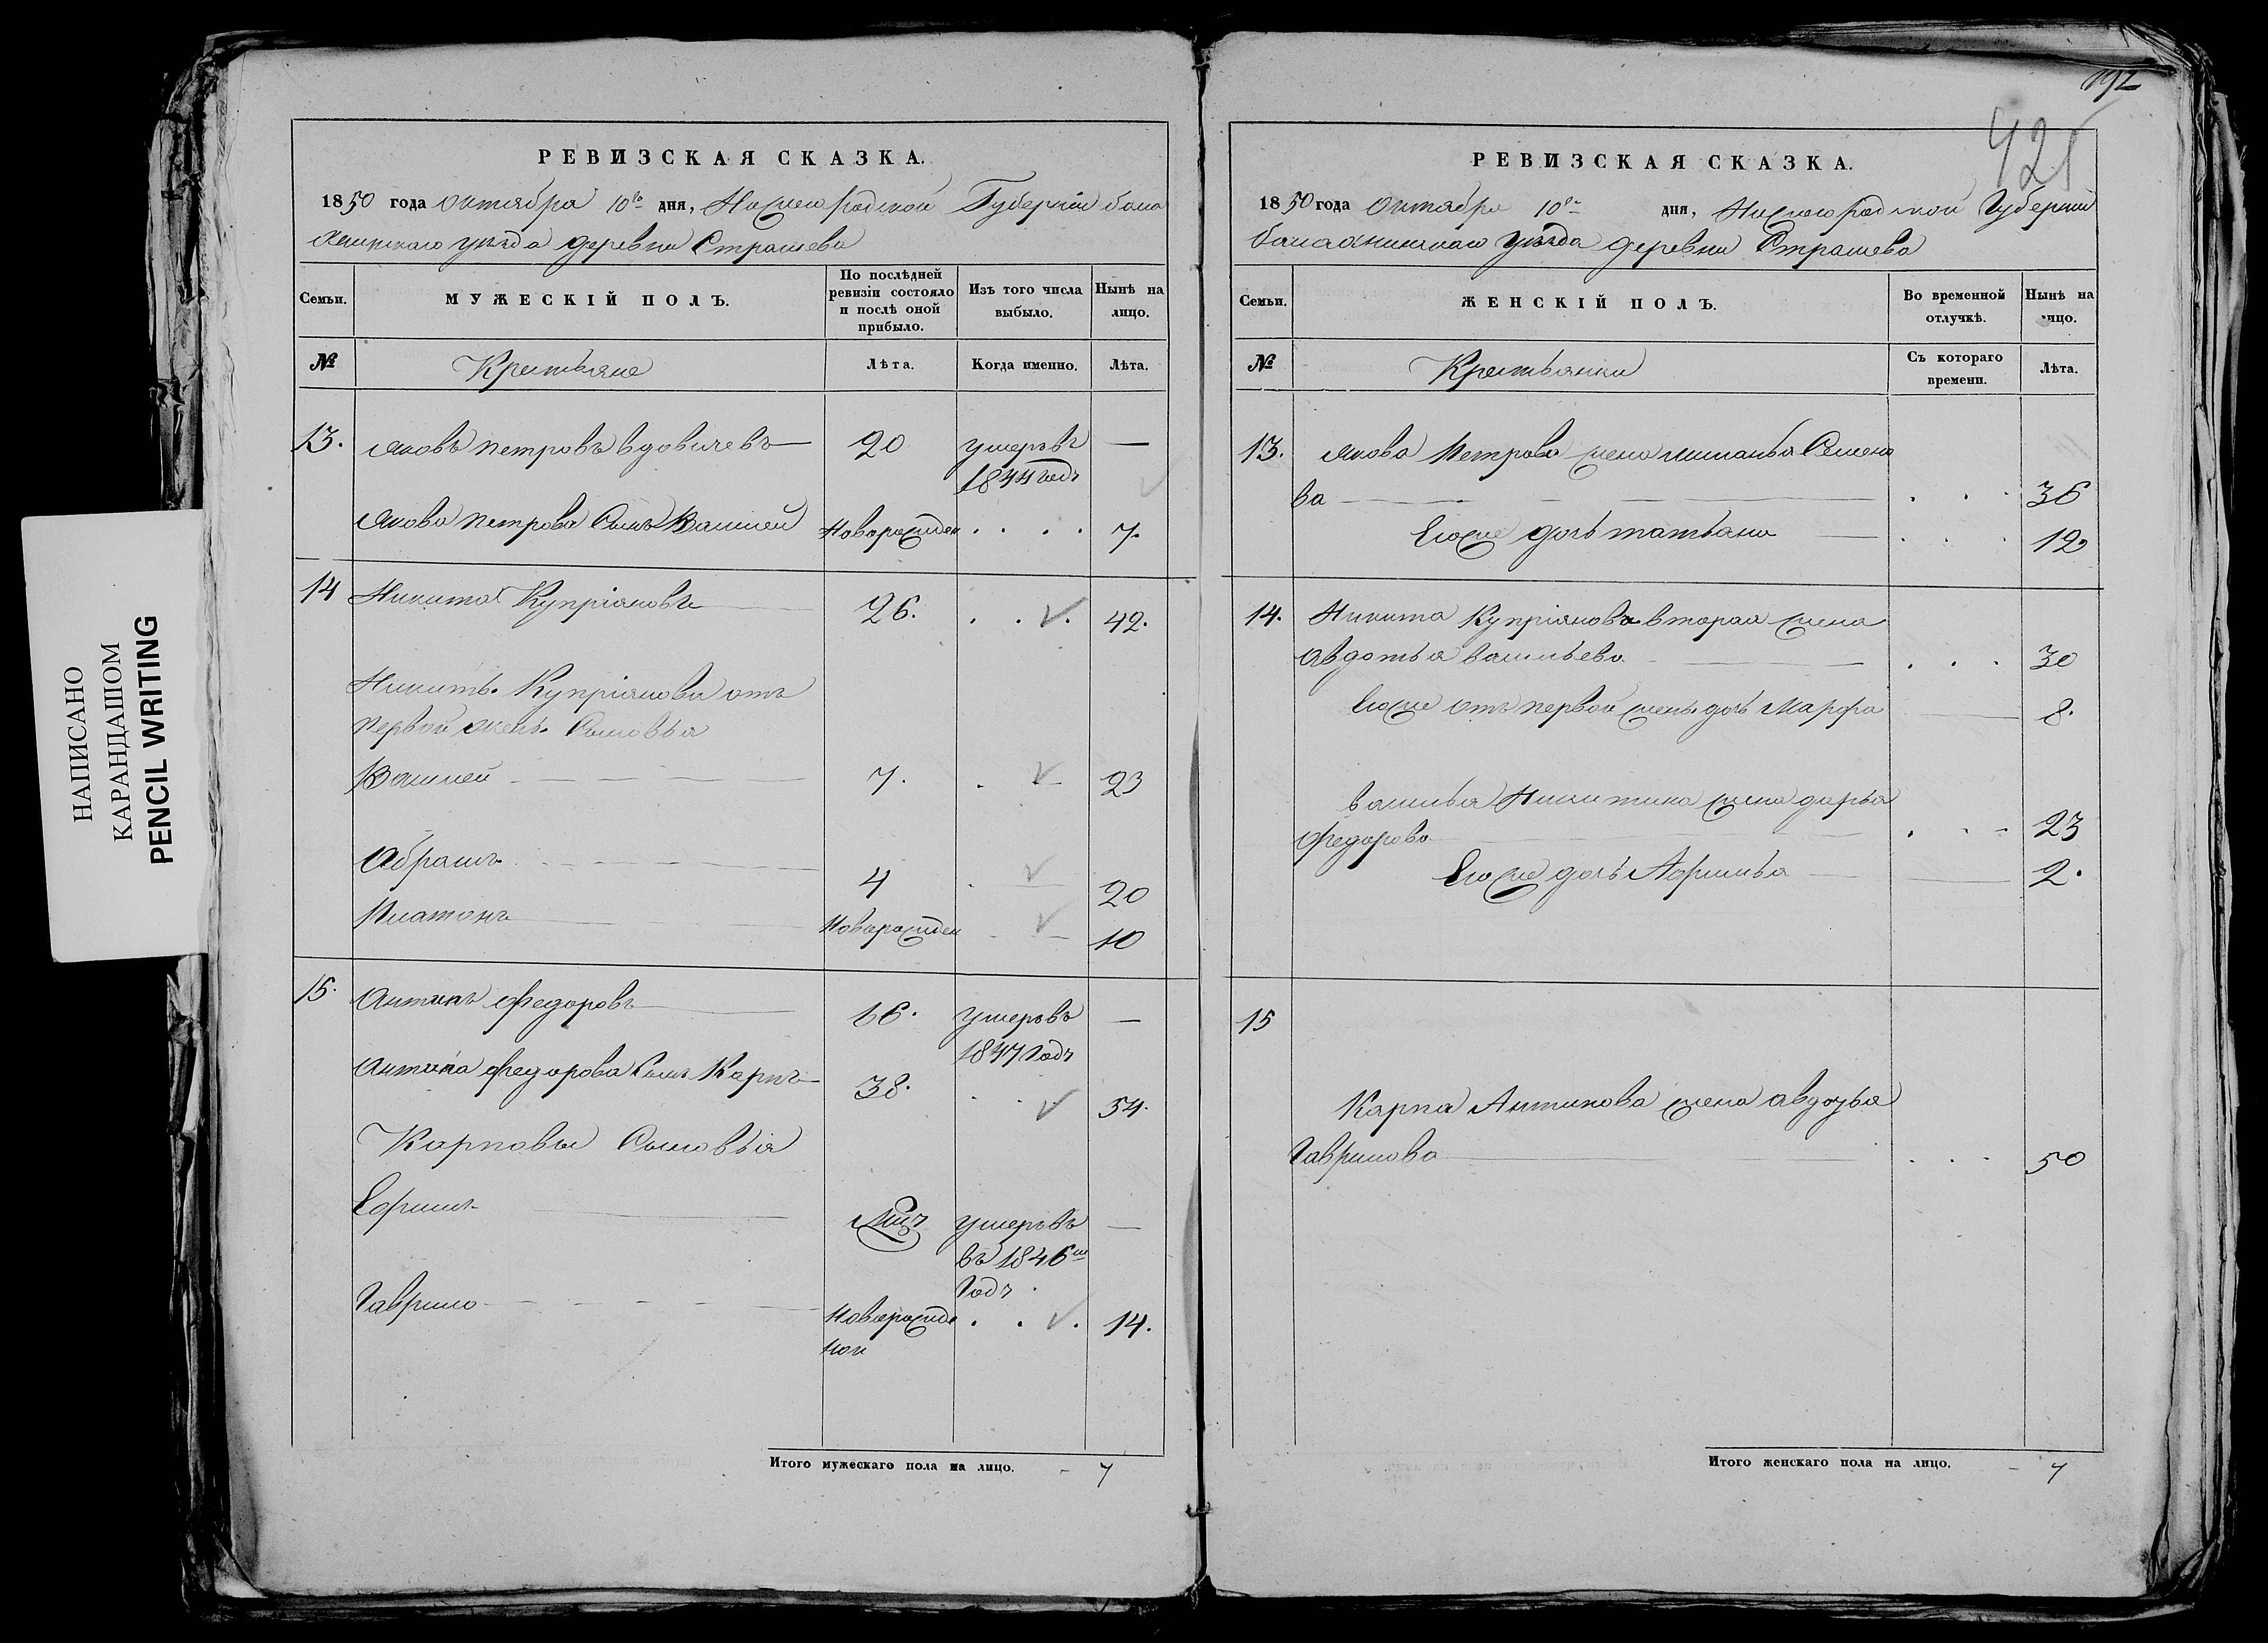 НАПИСАНО
КАРАНДАШОМ
PENCIL WRITING
РЕВИЗСКАЯ СКАЗКА.
1850 года октября 10го дня, Нижегородской Губернiи бала
хнинскаго уѣзда деревни Страшева
Семьи.
МУЖЕСКIЙ ПОЛЪ.
По послѣдней
ревизiи состояло
и послѣ оной
прибыло.
Изъ того числа
выбыло.
Нынѣ на
лицо.
№
Крестьяне
Лѣта.
Когда именно.
Лѣта.
13. Яковъ петровъ вдовичевъ 20 умеръвъ —
1844 годъ
Якова петрова Сынъ Василей Новорожден . . . . 7.
14 Никита Купрiяновъ 26. . . . 42.
Никиты Купрiянова отъ
первой жены Сыновья
Василей 7. . 23
Абрамъ 4 . 20
Платонъ Новорожден 10
15. Антипъ федоровъ 66. умеръвъ —
1847 Годъ
Антипа федорова Сынъ Карпъ 38. . . 54.
Карповы Сыновья
Ефимъ умеръвъ —
въ 1846м
Годъ.
Гаврило Новорожде . . . 14.
ной
Итого мужескаго пола на лицо. - 7
192
421
РЕВИЗСКАЯ СКАЗКА.
1850 года Октября 10го дня, Нижегородской Губернiи
балахнинскаго уѣзда деревни Страшева
Семьи.
ЖЕНСКIЙ ПОЛЪ.
Во временной
отлучкѣ.
Нынѣ на
лицо.
№
Крестьянки
Съ котораго
времени.
Лѣта.
13. Якова Петрова жена Семено
ва . . . 36
Егоже дочь татьяна . . . 12
14. Никита Купрiянова вторая жена
Авдотья васильева . . . 30
Егоже отъ первой жены дочь Марфа 8.
василья Никитина жена дарья
федорова . - - 23
Егоже дочь Афимья 2.
15
Карпа Антипова жена авдотья
Гаврилова . . . 50
Итого женскаго пола на лицо. - 7